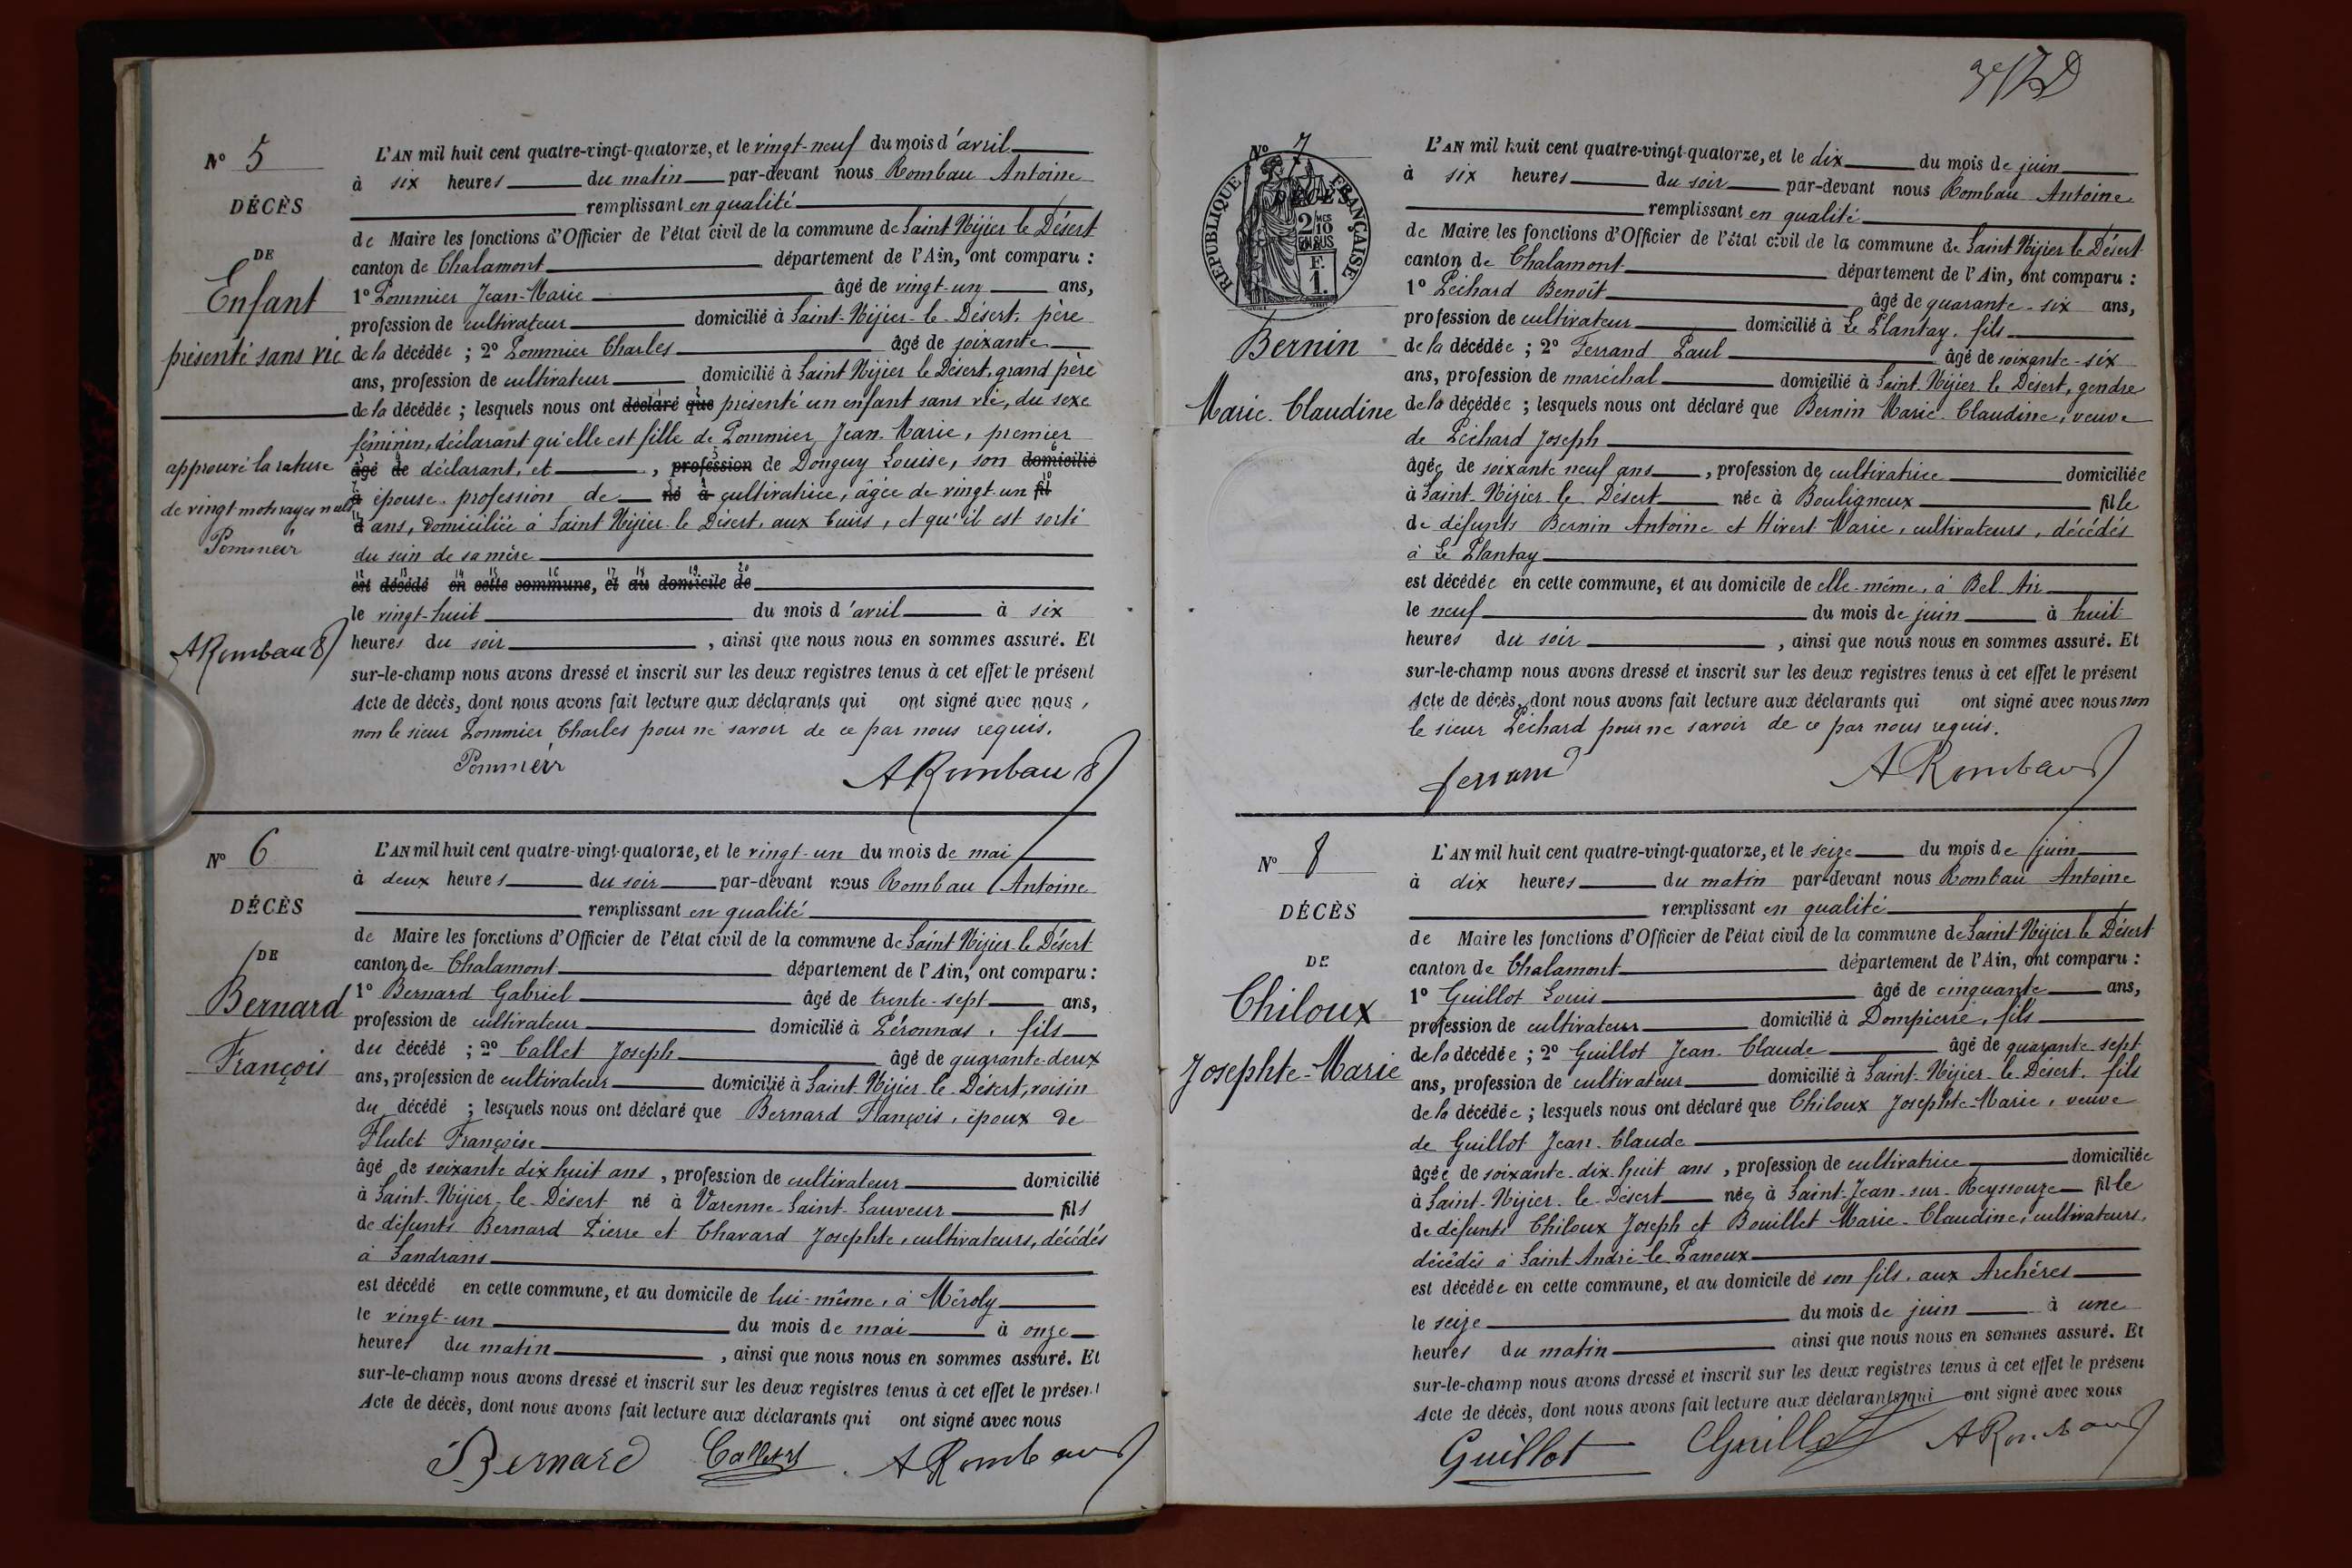 Nº 5
DÉCÈS
DE
Enfant
présenté sans vie
approuvé la rature
de vingt mots rayés nuls
Pommier
ARombau
L'AN mil huit cent quatre-vingt-quatorze, et le vingt-neuf du mois d'avril
à six heures du matin par-devant nous Rombau Antoine
remplissant en qualité
de Maire les fonctions d'Officier de l'état civil de la commune de Saint Nizier le Désert
canton de Chalamont département de l'Ain, ont comparu :
1º Pommier Jean-Marie âgé de vingt-un ans,
profession de cultivateur domicilié à Saint-Nizier-le-Désert, père
de la décédée ; 2º Pommier Charles âgé de soixante
ans, profession de cultivateur domicilié à Saint Nizier le Désert, grand père
de la décédée ; lesquels nous ont déclaré que présenté un enfant sans vie, du sexe
féminin, déclarant qu'elle est fille de Pommier Jean-Marie, premier
âgé de déclarant, et , profession de Donguy Louise, son domicilié
à épouse, profession de né à cultivatrice, âgée de vingt-un fil
d ans, domiciliée à Saint Nizier le Désert, aux Cuirs, et qu'il est sorti
du sein de sa mère
est décédé en cette commune, et au domicile de
le vingt-huit du mois d'avril à six
heures du soir , ainsi que nous nous en sommes assuré. Et
sur-le-champ nous avons dressé et inscrit sur les deux registres tenus à cet effet le présent
Acte de décès, dont nous avons fait lecture aux déclarants qui ont signé avec nous,
non le sieur Pommier Charles pour ne savoir de ce par nous requis.
Pommier ARombau
Nº 6
DÉCÈS
DE
Bernard
François
L'AN mil huit cent quatre-vingt-quatorze, et le vingt-un du mois de mai
à deux heures du soir par-devant nous Rombau Antoine
remplissant en qualité
de Maire les fonctions d'Officier de l'état civil de la commune de Saint Nizier le Désert
canton de Chalamont département de l'Ain, ont comparu :
1º Bernard Gabriel âgé de trente-sept ans,
profession de cultivateur domicilié à Péronnas, fils
du décédé ; 2º Callet Joseph âgé de quarante-deux
ans, profession de cultivateur domicilié à Saint-Nizier-le-Désert, voisin
du décédé ; lesquels nous ont déclaré que Bernard François, époux de
Flutet Françoise
âgé de soixante dix huit ans , profession de cultivateur domicilié
à Saint-Nizier-le-Désert né à Varenne-Saint-Sauveur fils
de défunts Bernard Pierre et Chavard Josephte, cultivateurs, décédés
à Sandrans
est décédé en cette commune, et au domicile de lui-même, à Méroly
le vingt-un du mois de mai à onze
heures du matin , ainsi que nous nous en sommes assuré. Et
sur-le-champ nous avons dressé et inscrit sur les deux registres tenus à cet effet le présent
Acte de décès, dont nous avons fait lecture aux déclarants qui ont signé avec nous
Bernard Callet ARombau
Nº 7
DÉCÈS
RÉPUBLIQUE FRANÇAISE
2/10
EN SUS
F.
1.
Bernin
Marie-Claudine
L'AN mil huit cent quatre-vingt-quatorze, et le dix du mois de juin
à six heures du soir par-devant nous Rombau Antoine
remplissant en qualité
de Maire les fonctions d'Officier de l'état civil de la commune de Saint Nizier le Désert
canton de Chalamont département de l'Ain, ont comparu :
1º Péchard Benoît âgé de quarante-six ans,
profession de cultivateur domicilié à Le Plantay, fils
de la décédée ; 2º Ferrand Paul âgé de soixante-six
ans, profession de maréchal domicilié à Saint-Nizier le Désert, gendre
de la décédée ; lesquels nous ont déclaré que Bernin Marie-Claudine, veuve
de Péchard Joseph
âgée de soixante neuf ans , profession de cultivatrice domiciliée
à Saint-Nizier-le-Désert née à Bouligneux fille
de défunts Bernin Antoine et Hivert Marie, cultivateurs, décédés
à Le Plantay
est décédée en cette commune, et au domicile de elle-même, à Bel-Air
le neuf du mois de juin à huit
heures du soir , ainsi que nous nous en sommes assuré. Et
sur-le-champ nous avons dressé et inscrit sur les deux registres tenus à cet effet le présent
Acte de décès, dont nous avons fait lecture aux déclarants qui ont signé avec nous non
le sieur Péchard pour ne savoir de ce par nous requis.
ferrand ARombau
Nº 8
DÉCÈS
DE
Chiloux
Josephte-Marie
L'AN mil huit cent quatre-vingt-quatorze, et le seize du mois de juin
à dix heures du matin par-devant nous Rombau Antoine
remplissant en qualité
de Maire les fonctions d'Officier de l'état civil de la commune de Saint Nizier le Désert
canton de Chalamont département de l'Ain, ont comparu :
1º Guillot Louis âgé de cinquante ans,
profession de cultivateur domicilié à Dompierre, fils
de la décédée ; 2º Guillot Jean-Claude âgé de quarante-sept
ans, profession de cultivateur domicilié à Saint-Nizier-le-Désert, fils
de la décédée ; lesquels nous ont déclaré que Chiloux Josephte-Marie, veuve
de Guillot Jean-Claude
âgée de soixante-dix-huit ans , profession de cultivatrice domiciliée
à Saint-Nizier-le-Désert née à Saint-Jean-sur-Reyssouze fille
de défunts Chiloux Joseph et Bouillet Marie-Claudine, cultivateurs,
décédés à Saint André le Panoux
est décédée en cette commune, et au domicile de son fils, aux Archères
le seize du mois de juin à une
heures du matin ainsi que nous nous en sommes assuré. Et
sur-le-champ nous avons dressé et inscrit sur les deux registres tenus à cet effet le présent
Acte de décès, dont nous avons fait lecture aux déclarants qui ont signé avec nous
Guillot CGuillot ARombau